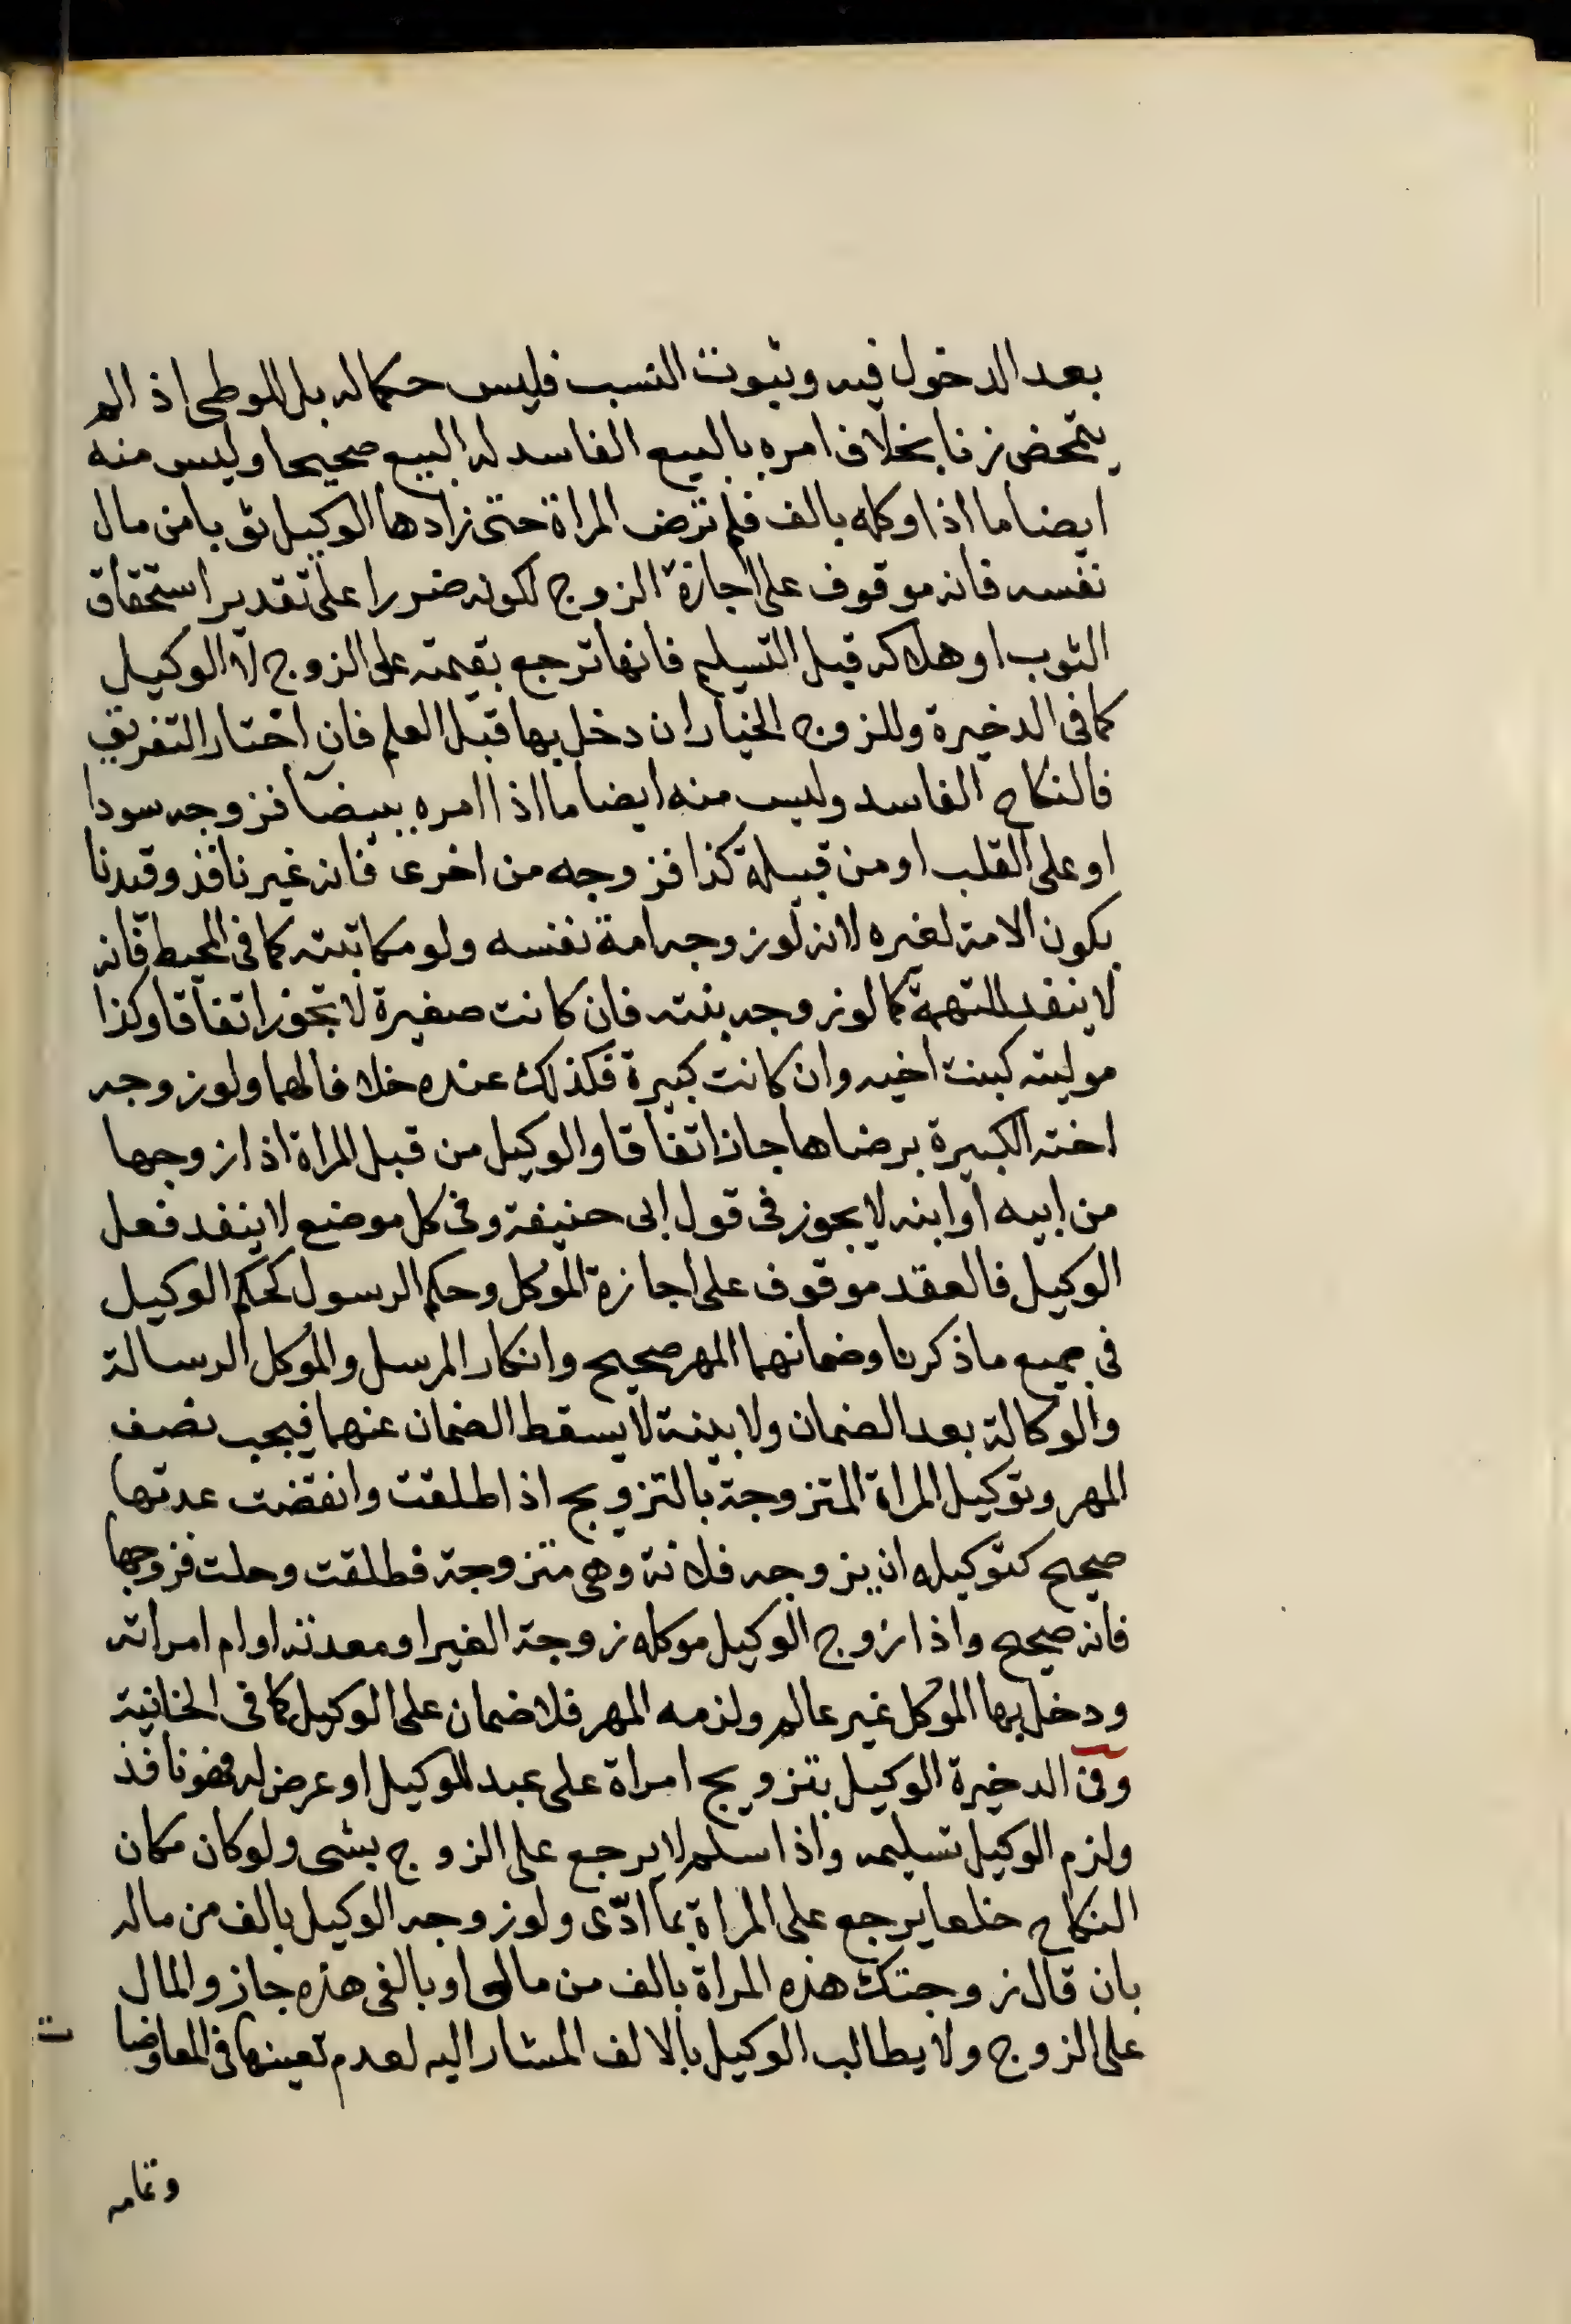 بعد الدخول فيه وثبوت النسب فليس حكما له بل للوطى اذ الم
يتمحض زنا بخلاف امره بالبيع الفاسد له البيع صحيحا وليس منه
ايضا ما اذا وكله بالف فلم ترض المراة حتى زادها الوكيل ثوبا من مال
نفسه فانه موقوف على اجازة الزوج لكونه ضررا على تقدير استحقاق
الثوب او هلاكه قبل التسليم فانها ترجع بقيمته على الزوج لا الوكيل
كما فى الدخيرة وللزوج الخيار ان دخل بها قبل العلم فان اختار التفريق
فالنكاح الفاسد وليس منه ايضا ما اذا امره ببيضا فزوجه سودا
او على القلب او من قبيلة كذا فزوجه من اخرى فانه غير نافذ وقيدنا
بكون الامة لغيره لانه لو زوجه امة نفسه ولو مكاتبته كما فى المحيط فانه
لا ينفد للتهمة كما لو زوجه بنته فان كانت صغيرة لا تجوز اتفاقا وكذا
موليته كبنت اخيه وان كانت كبيرة فكذلك عنده خلافا لهما ولو زوجه
اخته الكبيرة برضاها جاز اتفاقا والوكيل من قبل المراة اذا زوجها
من ابيه او ابنه لا يجوز فى قول ابى حنيفة وفى كل موضع لا ينفد فعل
الوكيل فالعقد موقوف على اجازة الموكل وحكم الرسول كحكم الوكيل
فى جميع ما ذكرنا وضمانهما المهر صحيح وانكار المرسل والموكل الرسالة
والوكالة بعد الضمان ولا بينة لا يسقط الضمان عنهما فيجب نصف
المهر وتوكيل المراة المتزوجة بالتزويج اذا طلقت وانقضت عدتها
صحيح كتوكيله ان يزوجه فلانة وهى متزوجة فطلقت وحلت فزوجها
فانه صحيح واذا زوج الوكيل موكله زوجة الغير او معدته او ام امراته
ودخل بها الموكل غير عالم ولزمه المهر فلا ضمان على الوكيل كما فى الخانية
وفى الدخيرة الوكيل بتزويج امراة على عبد للوكيل او عرض له فهو نافذ
ولزم الوكيل تسليمه واذا سلم لا يرجع على الزوج بشى ولو كان مكان
النكاح خلعا يرجع على المراة بما ادّى ولو زوجه الوكيل بالف من ماله
بان قال زوجتك هذه المراة بالف من مالى او بالفى هذه جاز والمال
على الزوج ولا يطالب الوكيل بالالف المشار اليه لعدم تعينها فى المعاوضات
وتمامه